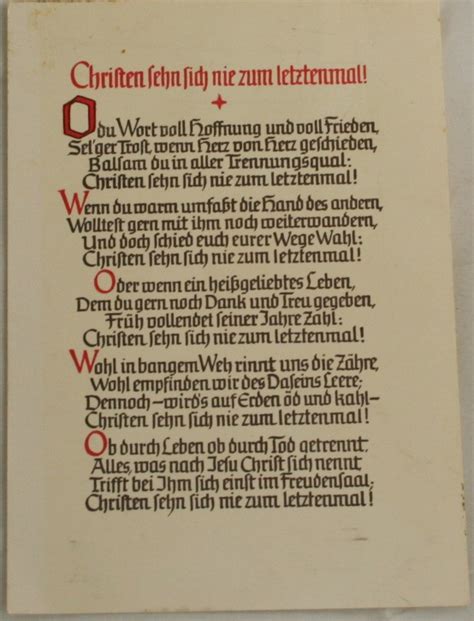 Christen sehn sich nie zum letztenmal!
O du Wort voll Hoffnung und voll Frieden,
Sel'ger Trost, wenn Herz von Herz geschieden,
Balsam du in aller Trennungsqual:
Christen sehn sich nie zum letztenmal!
Wenn du warm umfaßt die Hand des andern,
Wolltest gern mit ihm noch weiterwandern,
Und doch schied euch eurer Wege Wahl:
Christen sehn sich nie zum letztenmal!
Oder wenn ein heißgeliebtes Leben,
Dem du gern noch Dank und Treu gegeben,
Früh vollendet seiner Jahre Zahl:
Christen sehn sich nie zum letztenmal!
Wohl in bangem Weh rinnt uns die Zähre,
Wohl empfinden wir des Daseins Leere;
Dennoch – wird's auf Erden öd und kahl –
Christen sehn sich nie zum letztenmal!
Ob durch Leben ob durch Tod getrennt,
Alles, was nach Jesu Christ sich nennt
Trifft bei Ihm sich einst im Freudensaal:
Christen sehn sich nie zum letztenmal!